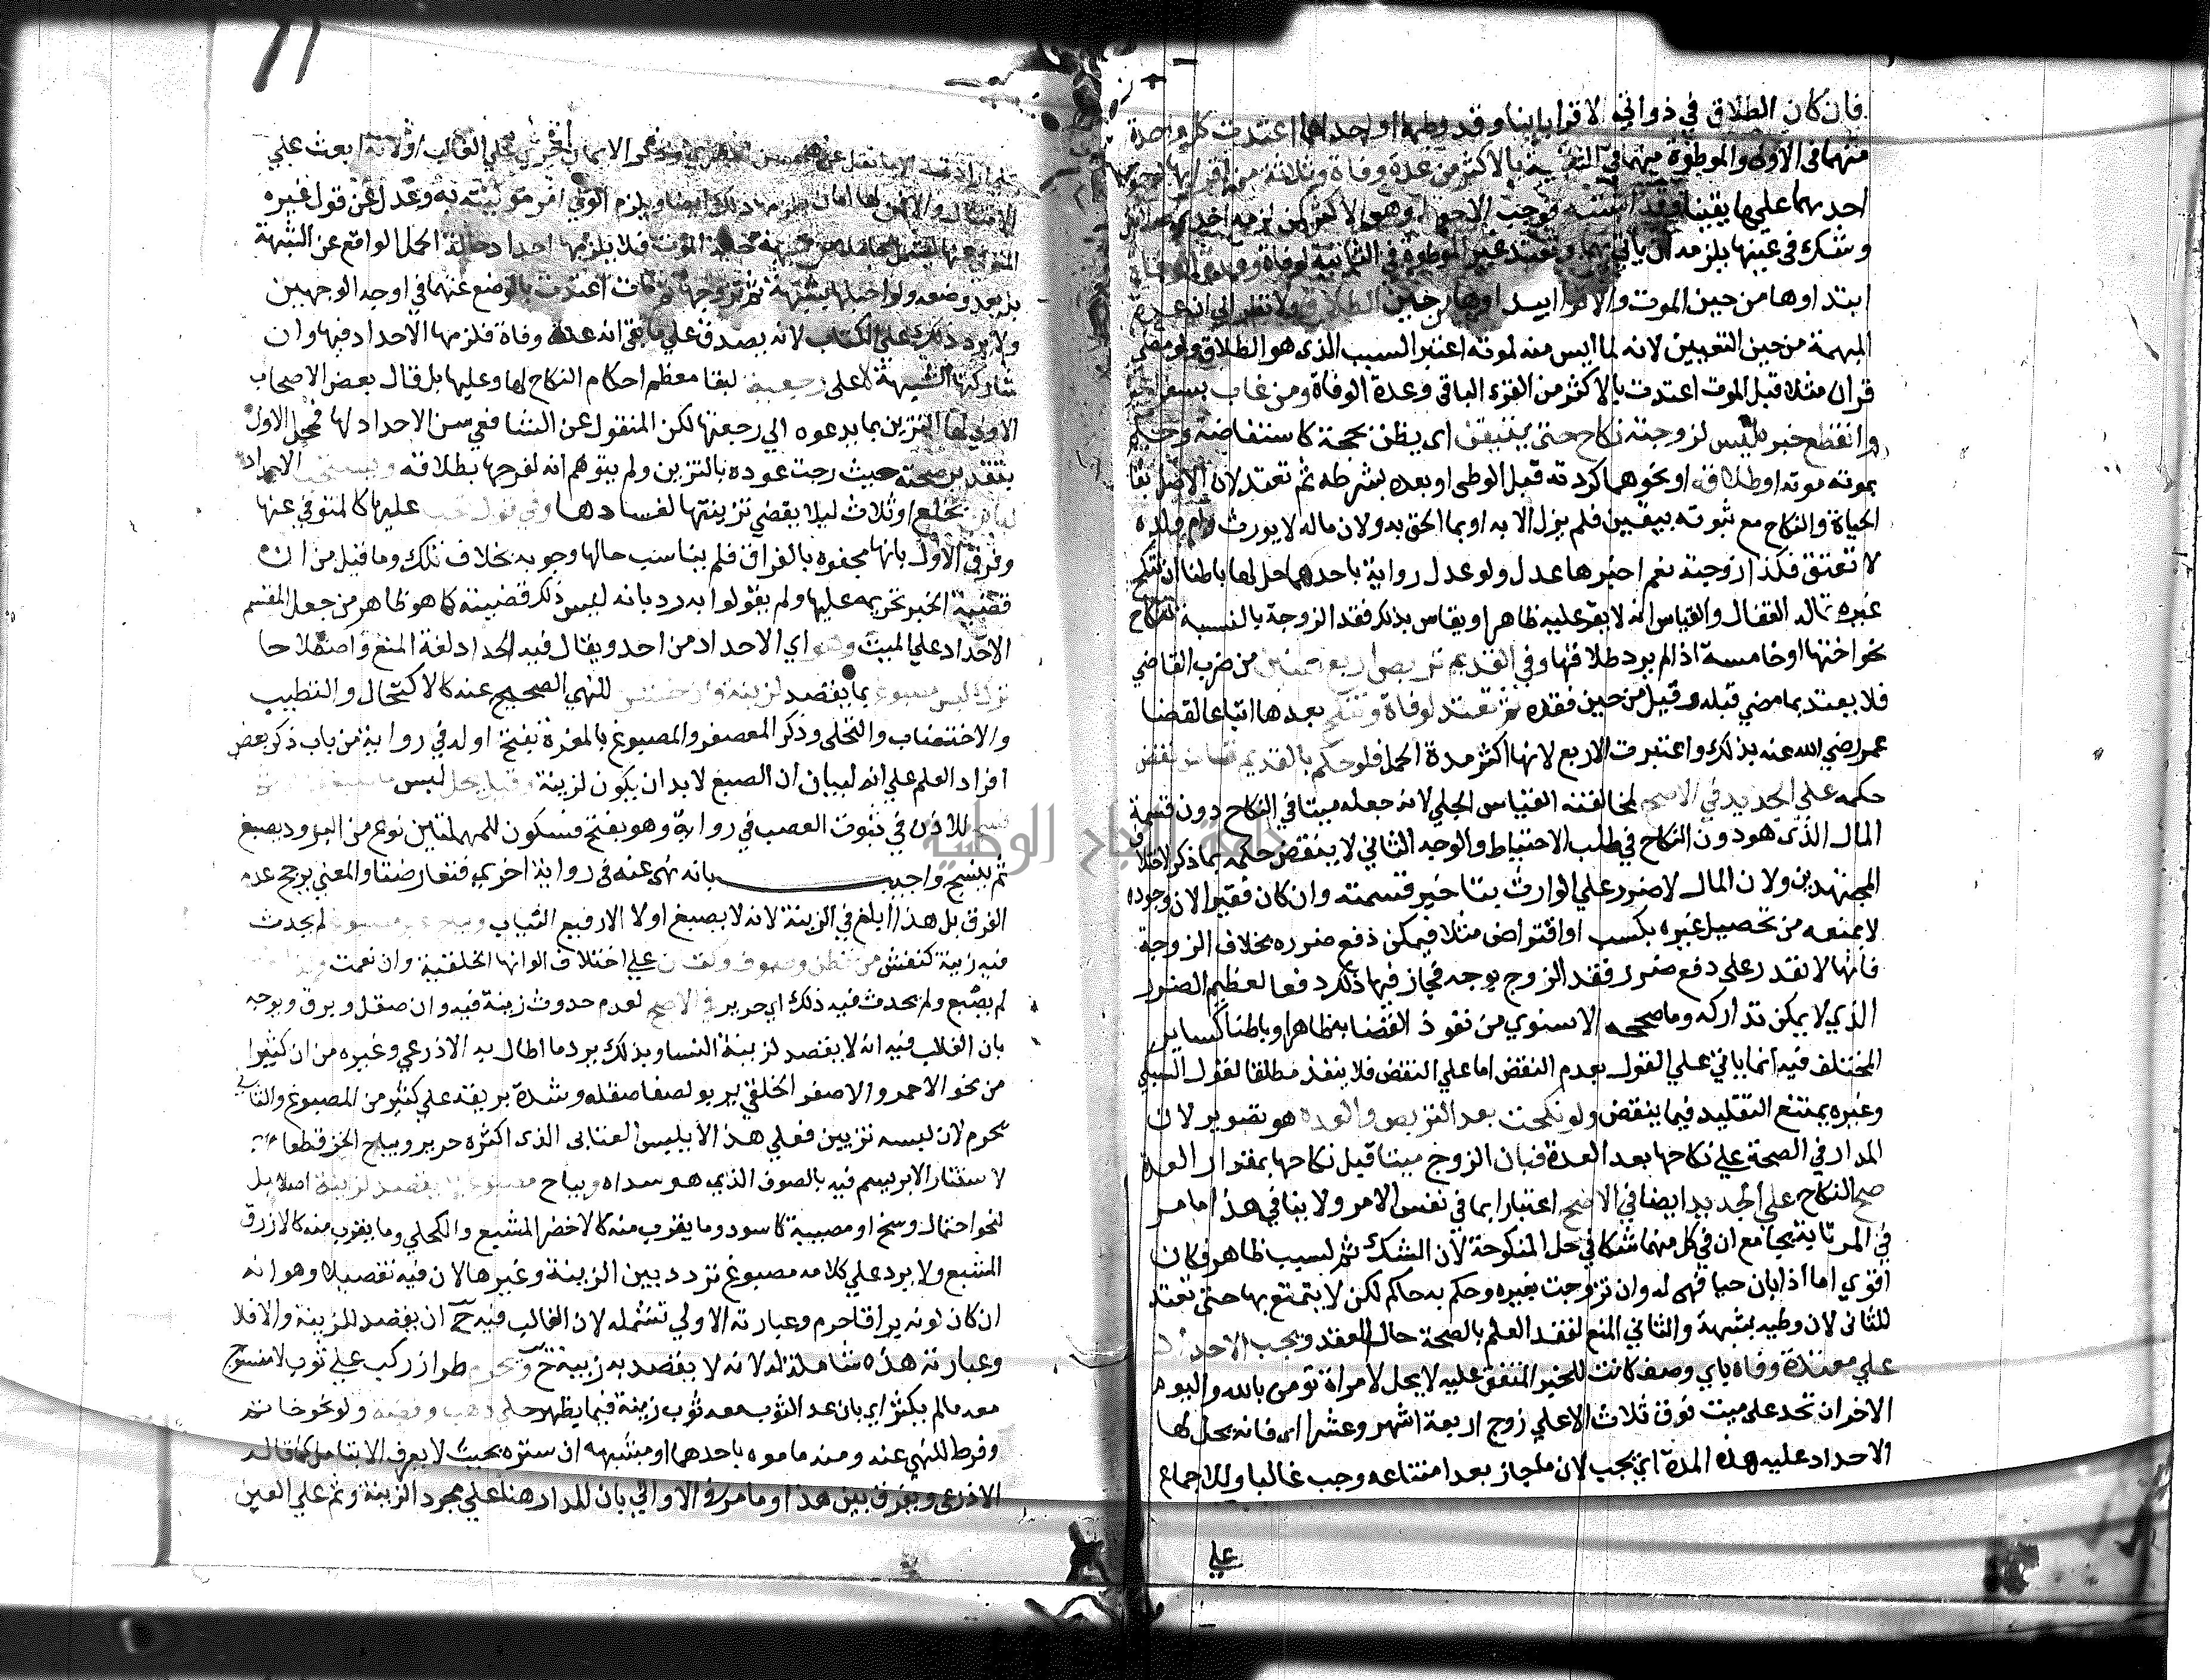 فان كان الطلاق في ذواتي الاقرا باينا وقد وطيها او احداهما اعتدت كل واحدة
منهما في الاولى والموطوة منهما في الثانية بالاكثر من عدة وفاة وثلاثة من اقرايها لوجوبها
احديهما عليها يقينا وقد اشتبه فوجب الاحوط وهو الاكثر كمن لزمه احدى صلاتين
وشك في عينها يلزمه ان ياتي بهما وتعتد غير الموطوة في الثانية لوفاة وعدة الوفاة
ابتداوها من حين الموت والاقرا ابتداوها من حين الطلاق ولا نظر الى ان عدة
المبهمة من حين التعيين لانه لما ايس منه لموته اعتبر السبب الذي هو الطلاق ولو مضى
قران مثلا قبل الموت اعتدت بالاكثر من القرء الباقي وعدة الوفاة ومن غاب بسفر او غيره
وانقطع خبره ليس لزوجته نكاح حتى يتيقن اي يظن بحجة كاستفاضة وحكم
بموته موته او طلاقه او نحوهما كردته قبل الوطي او بعده بشرطه ثم تعتد لان الاصل بقا
الحياة والنكاح مع ثبوته بيقين فلم يزل الا به او بما الحق به ولان ماله لا يورث وام ولده
لا تعتق فكذا زوجته نعم اخبرها عدل ولو عدل رواية باحدهما حل لها باطنا ان تنكح
غيره قاله القفال والقياس انه لا يقر عليه ظاهرا ويقاس بذلك فقد الزوجة بالنسبة لنكاح
نحو اختها او خامسة اذا لم يرد طلاقها وفي القديم تربص اربع سنين من ضرب القاضي
فلا يعتد بما مضى قبله وقيل من حين فقده ثم تعتد لوفاة وتنكح بعدها اتباعا لقضا
عمر رضي الله عنه بذلك واعتبرت الاربع لانها اكثر مدة الحمل فلو حكم بالقديم قاض نقض
حكمه على الجديد في الاصح لمخالفته القياس الجلي لانه جعله ميتا في النكاح دون قسمة
المال الذي هو دون النكاح في طلب الاحتياط والوجه الثاني لا ينقض حكمه بما ذكر لاختلاف
المجتهدين ولان المال لا ضرر على الوارث بتاخير قسمته وان كان فقيرا لان وجوده
لا يمنعه من تحصيل غيره بكسب او اقتراض مثلا فيمكن دفع ضرره بخلاف الزوجة
فانها لا تقدر على دفع ضرر فقد الزوج بوجه فجاز فيها ذلك دفعا لعظيم الضرر
الذي لا يمكن تداركه وما صححه الاسنوي من نفوذ القضا به ظاهرا وباطنا كساير
المختلف فيه انما ياتي على القول بعدم النقض اما على النقض فلا ينفذ مطلقا لقول السبكي
وغيره يمتنع التقليد فيما ينقض ولو نكحت بعد التربص والعدة هو تصوير لان
المدار في الصحة على نكاحها بعد العدة فبان الزوج ميتا قبل نكاحها بمقدار العدة
صح النكاح على الجديد ايضا في الاصح اعتبارا بما في نفس الامر ولا ينافي هذا ما مر
في المرتابة بجامع ان في كل منهما شكا في حل المنكوحة لان الشك ثم لسبب ظاهر فكان
اقوي اما اذا بان حيا فهي له وان تزوجت بغيره وحكم به حاكم لكن لا يتمتع بها حتى تعتد
للثاني لان وطيه بشبهة والثاني المنع لفقد العلم بالصحة حال العقد ويجب الاحداد
على معتدة وفاة باي وصف كانت للخبر المتفق عليه لا يحل لامراة تومن بالله واليوم
الاخر ان تحد على ميت فوق ثلاث الا على زوج اربعة اشهر وعشرا اي فانه يحل لها
الاحداد عليه هذه المدة اي يجب لان ما جاز بعد امتناعه وجب غالبا وللاجماع
على
11
الاولى لها التزين بما يدعوه الى رجعتها لكن المنقول عن الشافعي سن الاحداد لها فمحل الاول
بتقدير صحته حيث رجت عوده بالتزين ولم يتوهم انه لفرحها بطلاقه ويستحب الاحداد
لباين بخلع او ثلاث ليلا يفضي تزينها لفسادها وفي قول يجب عليها كالمتوفي عنها
وفرق الاول بانها مجفوة بالفراق فلم يناسب حالها وجوبه بخلاف تلك وما قيل من ان
قضية الخبر تحريمه عليها ولم يقولوا به رد بانه ليس ذلك قضيته كما هو ظاهر من جعل المقسم
الاحداد على الميت وهو اي الاحداد من احد ويقال فيه الحداد لغة المنع واصطلاحا
ترك لبس مصبوغ بما يقصد لزينة وان خشن للنهي الصحيح عنه كالاكتحال والتطيب
والاختضاب والتحلي وذكر المعصفر والمصبوغ بالمغرة بفتح اوله في رواية من باب ذكر بعض
افراد العلم على انه لبيان ان الصبغ لا بد ان يكون لزينة وقيل يحل لبس ما صبغ
للاذن في ثوب العصب في رواية وهو بفتح فسكون للمهملتين نوع من البرود يصبغ
ثم ينسج واجيب بانه نهى عنه في رواية اخرى فتعارضتا والمعنى يرجح عدم
الفرق بل هذا ابلغ في الزينة لانه لا يصبغ اولا الا رفيع الثياب ويباح غير مصبوغ لم يحدث
فيه زينة كنقش من قطن وصوف وكتان على اختلاف الوانها الخلقية وان نعمت وكذا
لم يصبغ ولم يحدث فيه ذلك اي حرير في الاصح لعدم حدوث زينة فيه وان صقل وبرق ويوجه
بان الغالب فيه انه لا يقصد لزينة النسا وبذلك يرد ما اطال به الاذرعي وغيره من ان كثيرا
من نحو الاحمر والاصفر الخلقي يربو لصفا صقله وشدة بريقه على كثير من المصبوغ والثاني
يحرم لان لبسه تزيين فعلى هذا لا يلبس العتابي الذي اكثره حرير ويباح الخز قطعا
لاستتار الابريسم فيه بالصوف الذي هو سداه ويباح مصبوغ لا يقصد لزينة اصلا بل
لنحو احتمال وسخ او مصيبة كاسود وما يقرب منه كالاخضر المشبع والكحلي وما يقرب منه كالازرق
المشبع ولا يرد على كلامه مصبوغ تردد بين الزينة وغيرها لان فيه تفصيلا وهو انه
ان كان لونه براقا حرم وعبارته الاولى تشتمله لان الغالب فيه ح ان يقصد للزينة والا فلا
وعبارته هذه شاملة له لانه لا يقصد به زينة ح ويحرم طراز ركب على ثوب لا منسوج
معه ما لم يكثر اي بان عد الثوب معه ثوب زينة فيما يظهر وحلي ذهب وفضة ولو نحو خاتم
وقرط للنهي عنه ومنه ما موه باحدهما او مشبهه ان ستره بحيث لا يعرف الا بتامل كما قاله
الاذرعي ويفرق بين هذا وما مر في الاواني بان المدار هنا على مجرد الزينة وثم على العين